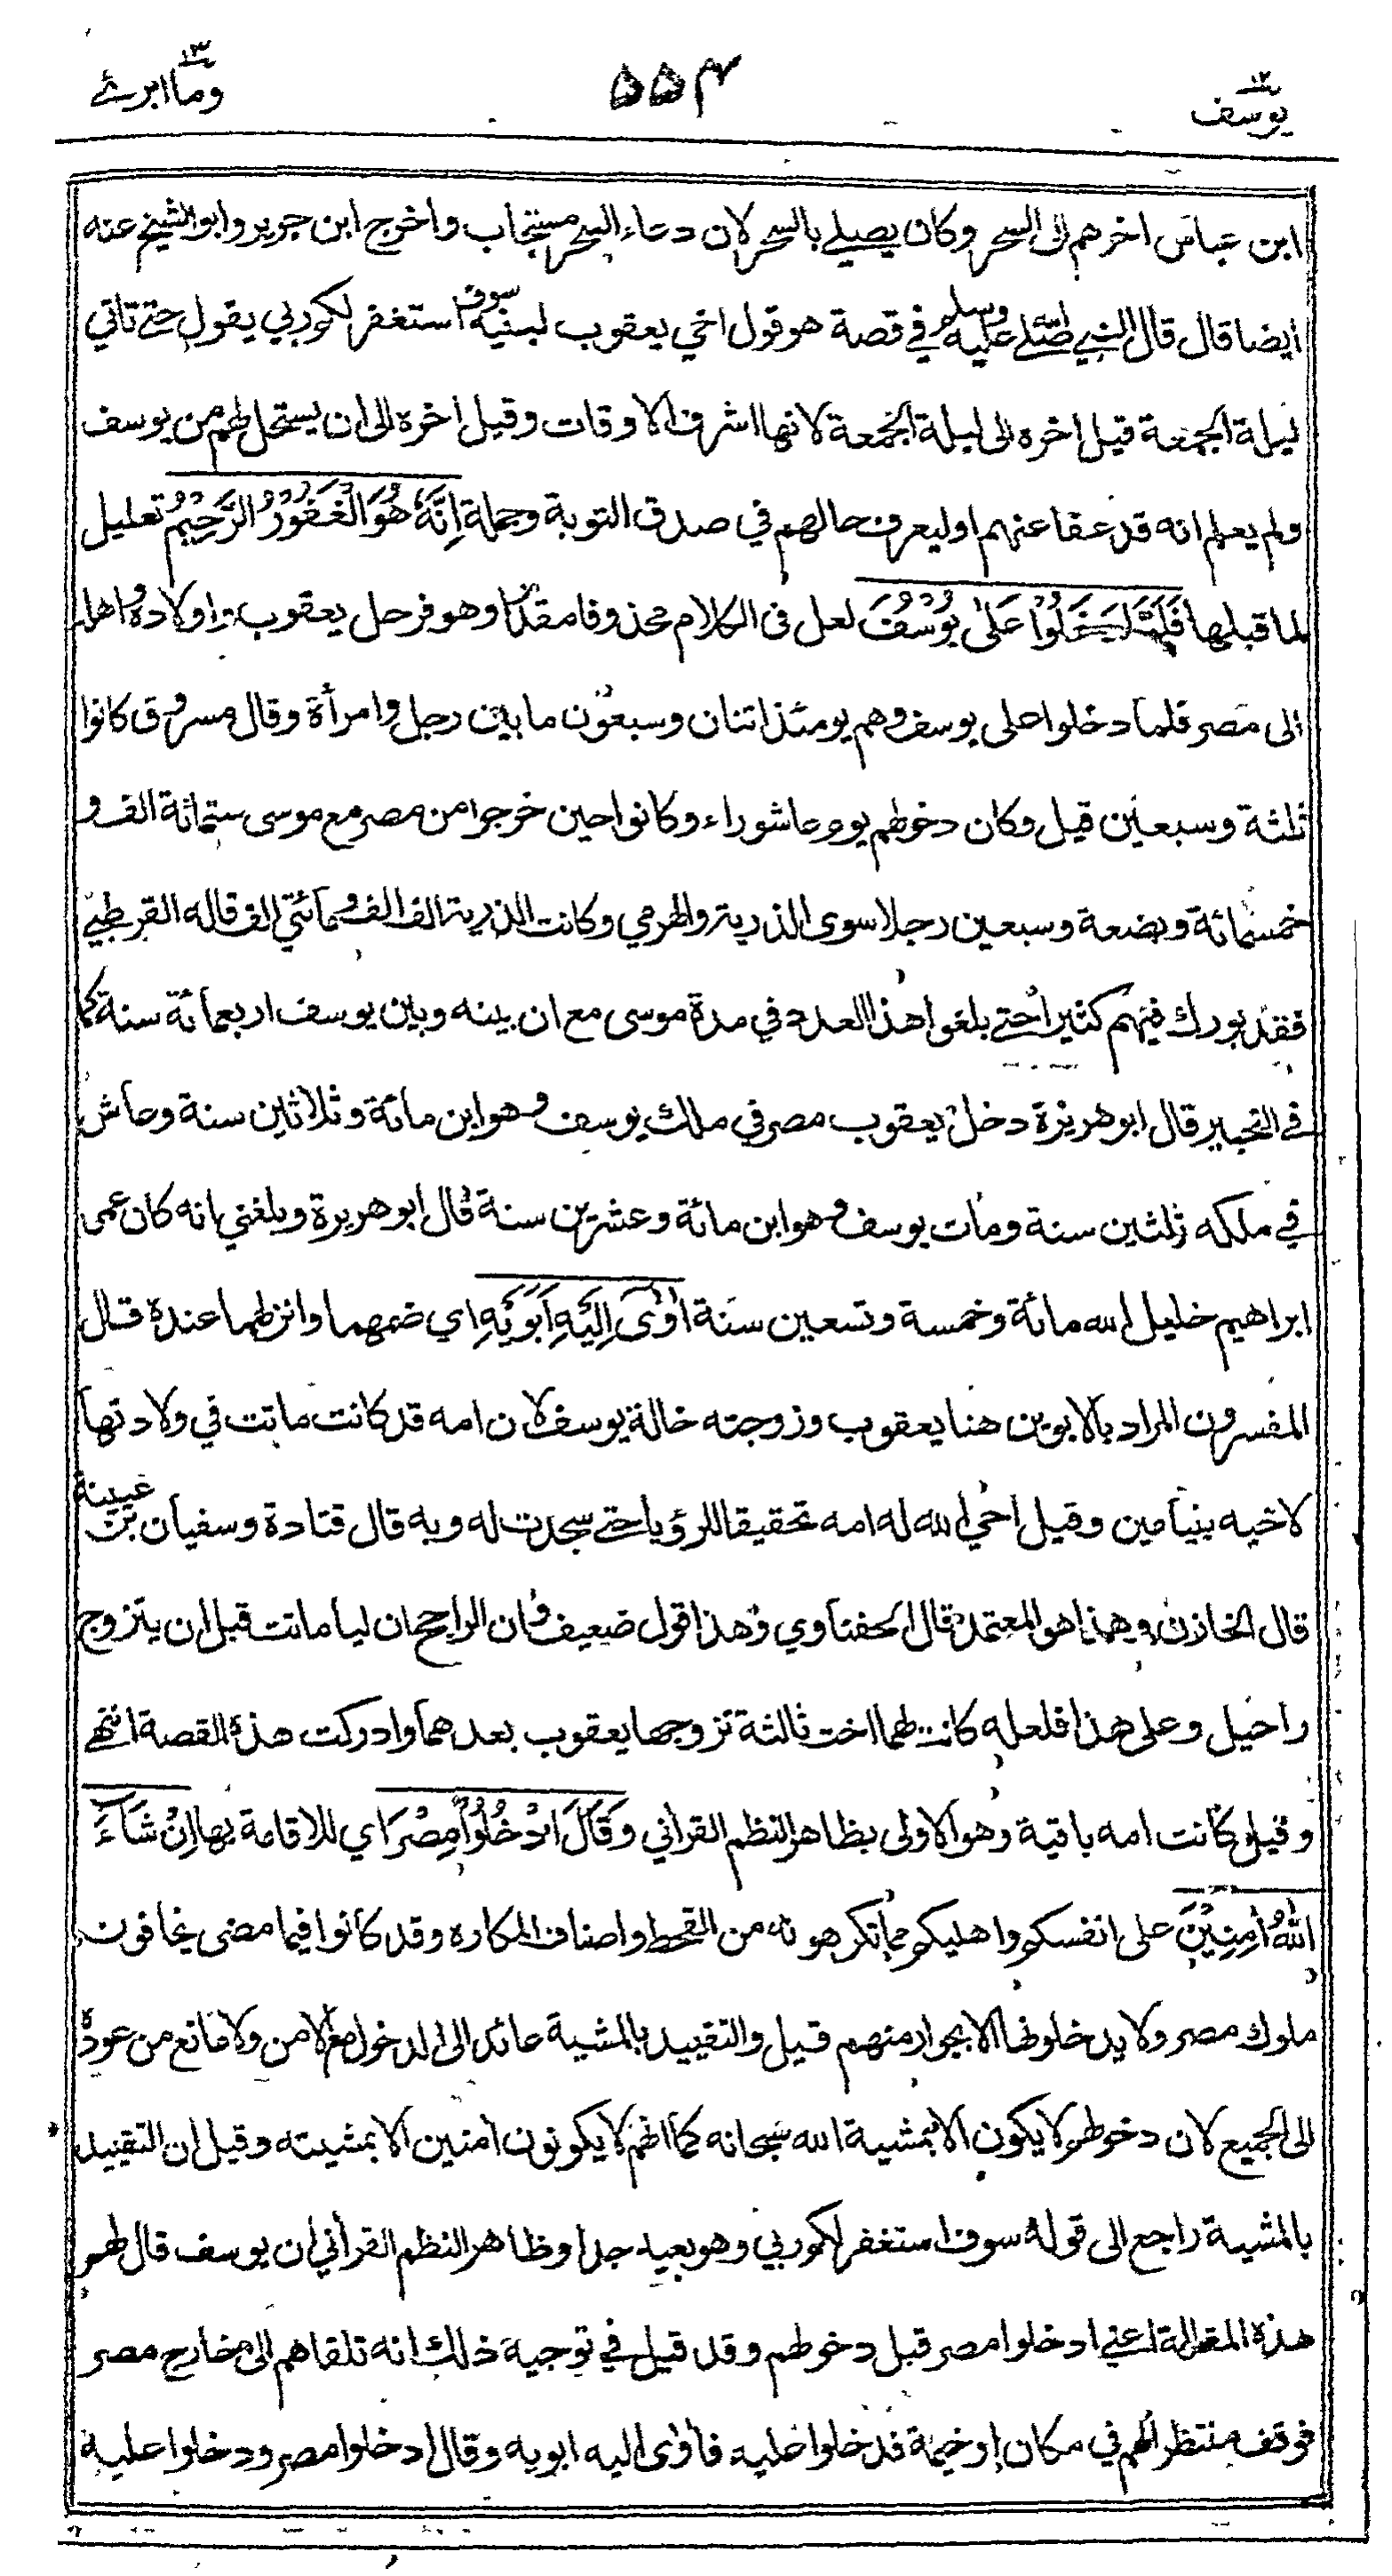 يوسف ١٢
٥٥٤
وما ابرئ ١٣
ابن عباس اخرهم الى السحر وكان يصلي بالسحر لان دعاء السحر مستجاب واخرج ابن جرير وابو الشيخ عنه
ايضا قال قال النبي صلى الله عليه وسلم في قصة هو قول اخي يعقوب لبنيه سوف استغفر لكم ربي يقول حتى تاتي
ليلة الجمعة قيل اخره الى ليلة الجمعة لانها اشرف الاوقات وقيل اخره الى ان يستحل لهم من يوسف
ولم يعلم انه قد عفا عنهم او ليعرف حالهم في صدق التوبة وجملة اِنَّهٗ هُوَ الْغَفُوْرُ الرَّحِيْمُ تعليل
لما قبلها فَلَمَّا دَخَلُوْا عَلٰى يُوْسُفَ لعل في الكلام محذوفا مقدرا وهو فرحل يعقوب واولاده واهله
الى مصر فلما دخلوا على يوسف وهم يومئذ اثنان وسبعون ما بين رجل وامرأة وقال مسروق كانوا
ثلثة وسبعين قيل وكان دخولهم يوم عاشوراء وكانوا حين خرجوا من مصر مع موسى ستمائة الف و
خمسمائة وبضعة وسبعين رجلا سوى الذرية والهرمي وكانت الذرية الف الف ومائتي الف قاله القرطبي
فقد بورك فيهم كثيرا حتى بلغوا هذا العدد في مدة موسى مع ان بينه وبين يوسف اربعمائة سنة كما
في التحبير قال ابو هريرة دخل يعقوب مصر في ملك يوسف وهو ابن مائة وثلاثين سنة وعاش
في ملكه ثلثين سنة ومات يوسف وهو ابن مائة وعشرين سنة قال ابو هريرة وبلغني انه كان عمر
ابراهيم خليل الله مائة وخمسة وتسعين سنة اٰوٰى اِلَيْهِ اَبَوَيْهِ اي ضمهما وانزلهما عنده قال
المفسرون المراد بالابوين هنا يعقوب وزوجته خالة يوسف لان امه قد كانت ماتت في ولادتها
لاخيه بنيامين وقيل احي الله له امه تحقيقا للرؤيا حتى سجدت له وبه قال قتادة وسفيان بن عيينة
قال الخازن وهذا هو المعتمد قال الحفناوي وهذا قول ضعيف وان الراجح ان ليا ماتت قبل ان يتزوج
راحيل وعلى هذا فلعله كانت لهما اخت ثالثة تزوجها يعقوب بعدهما وادركت هذه القصة انتهى
وقيل كانت امه باقية وهو الاولى بظاهر النظم القرآني وَقَالَ ادْخُلُوْا مِصْرَ اي للاقامة بها اِنْ شَآءَ
اللّٰهُ اٰمِنِيْنَ على انفسكم واهليكم مما تكرهونه من القحط واصناف المكاره وقد كانوا فيما مضى يخافون
ملوك مصر ولا يدخلونها الا بجوار منهم قيل والتقييد بالمشية عائد الى الدخول مع الامن ولا مانع من عوده
الى الجميع لان دخولهم لا يكون الا بمشية الله سبحانه كما انهم لا يكونون امنين الا بمشيته وقيل ان التقييد
بالمشية راجع الى قوله سوف استغفر لكم ربي وهو بعيد جدا وظاهر النظم القرآني ان يوسف قال لهم
هذه المقالة اعني ادخلوا مصر قبل دخولهم وقد قيل في توجيه ذلك انه تلقاهم الى خارج مصر
فوقف منتظرا لهم في مكان او خيمة فدخلوا عليه فاٰوٰى اليه ابويه وقال ادخلوا مصر ودخلوا عليه